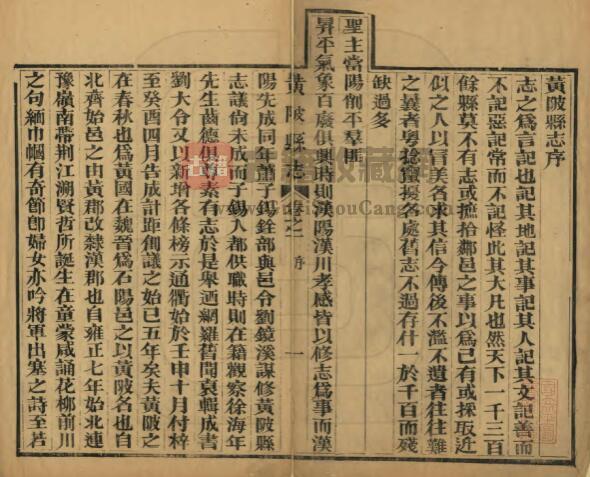 黃陂縣志序
志之爲言記也記其地記其事記其人記其文記善而
不記惡記常而不記怪此其大凡也然天下一千三百
餘縣莫不有志或摭拾鄰邑之事以爲己有或採取近
似之人以冒美名求其信今傳後不濫不遺者往往難
之義者粵捻竄擾各處舊志不過存什一於千百而殘
缺過多
聖主當陽削平羣匪
昇平氣象百廢俱興時則漢陽漢川孝感皆以修志爲事而漢
黃陂縣志 卷之一 序 一
陽先成同年蕭子錫銓部與邑令劉鏡溪謀修黃陂縣
志議尚未成而子錫入都供職時則在籍觀察徐海年
先生齒德俱尊素有志於是舉迺網羅舊聞裒輯成書
劉大令又以新增各條榜示通衢始於壬申十月付梓
至癸酉四月告成計距創議之始已五年矣夫黃陂之
在春秋也爲黃國在魏晉爲石陽邑之以黃陂名也自
北齊始邑之由黃郡改隸漢郡也自雍正七年始北連
豫嶺南帶荆江溯賢哲所誕生在童蒙咸誦花柳前川
之句緬巾幗有奇節卽婦女亦吟將軍出塞之詩至若
古籍收藏網
ShouCang